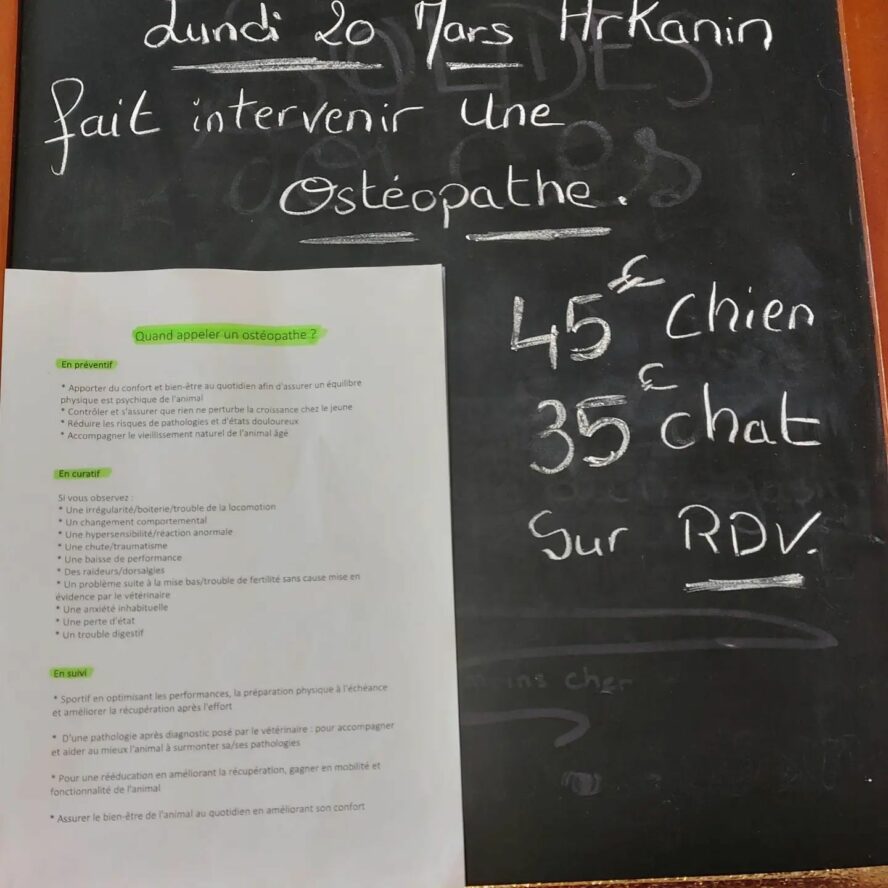 Lundi 20 Mars Arkanin
fait intervenir une
Ostéopathe.
45€ Chien
35€ chat
Sur RDV.
Quand appeler un ostéopathe ?
En préventif
* Apporter du confort et bien-être au quotidien afin d'assurer un équilibre
physique est psychique de l'animal
* Contrôler et s'assurer que rien ne perturbe la croissance chez le jeune
* Réduire les risques de pathologies et d'états douloureux
* Accompagner le vieillissement naturel de l'animal âgé
En curatif
Si vous observez :
* Une irrégularité/boiterie/trouble de la locomotion
* Un changement comportemental
* Une hypersensibilité/réaction anormale
* Une chute/traumatisme
* Une baisse de performance
* Des raideurs/dorsalgies
* Un problème suite à la mise bas/trouble de fertilité sans cause mise en
évidence par le vétérinaire
* Une anxiété inhabituelle
* Une perte d'état
* Un trouble digestif
En suivi
* Sportif en optimisant les performances, la préparation physique à l'échéance
et améliorer la récupération après l'effort
* D'une pathologie après diagnostic posé par le vétérinaire : pour accompagner
et aider au mieux l'animal à surmonter sa/ses pathologies
* Pour une rééducation en améliorant la récupération, gagner en mobilité et
fonctionnalité de l'animal
* Assurer le bien-être de l'animal au quotidien en améliorant son confort
cher